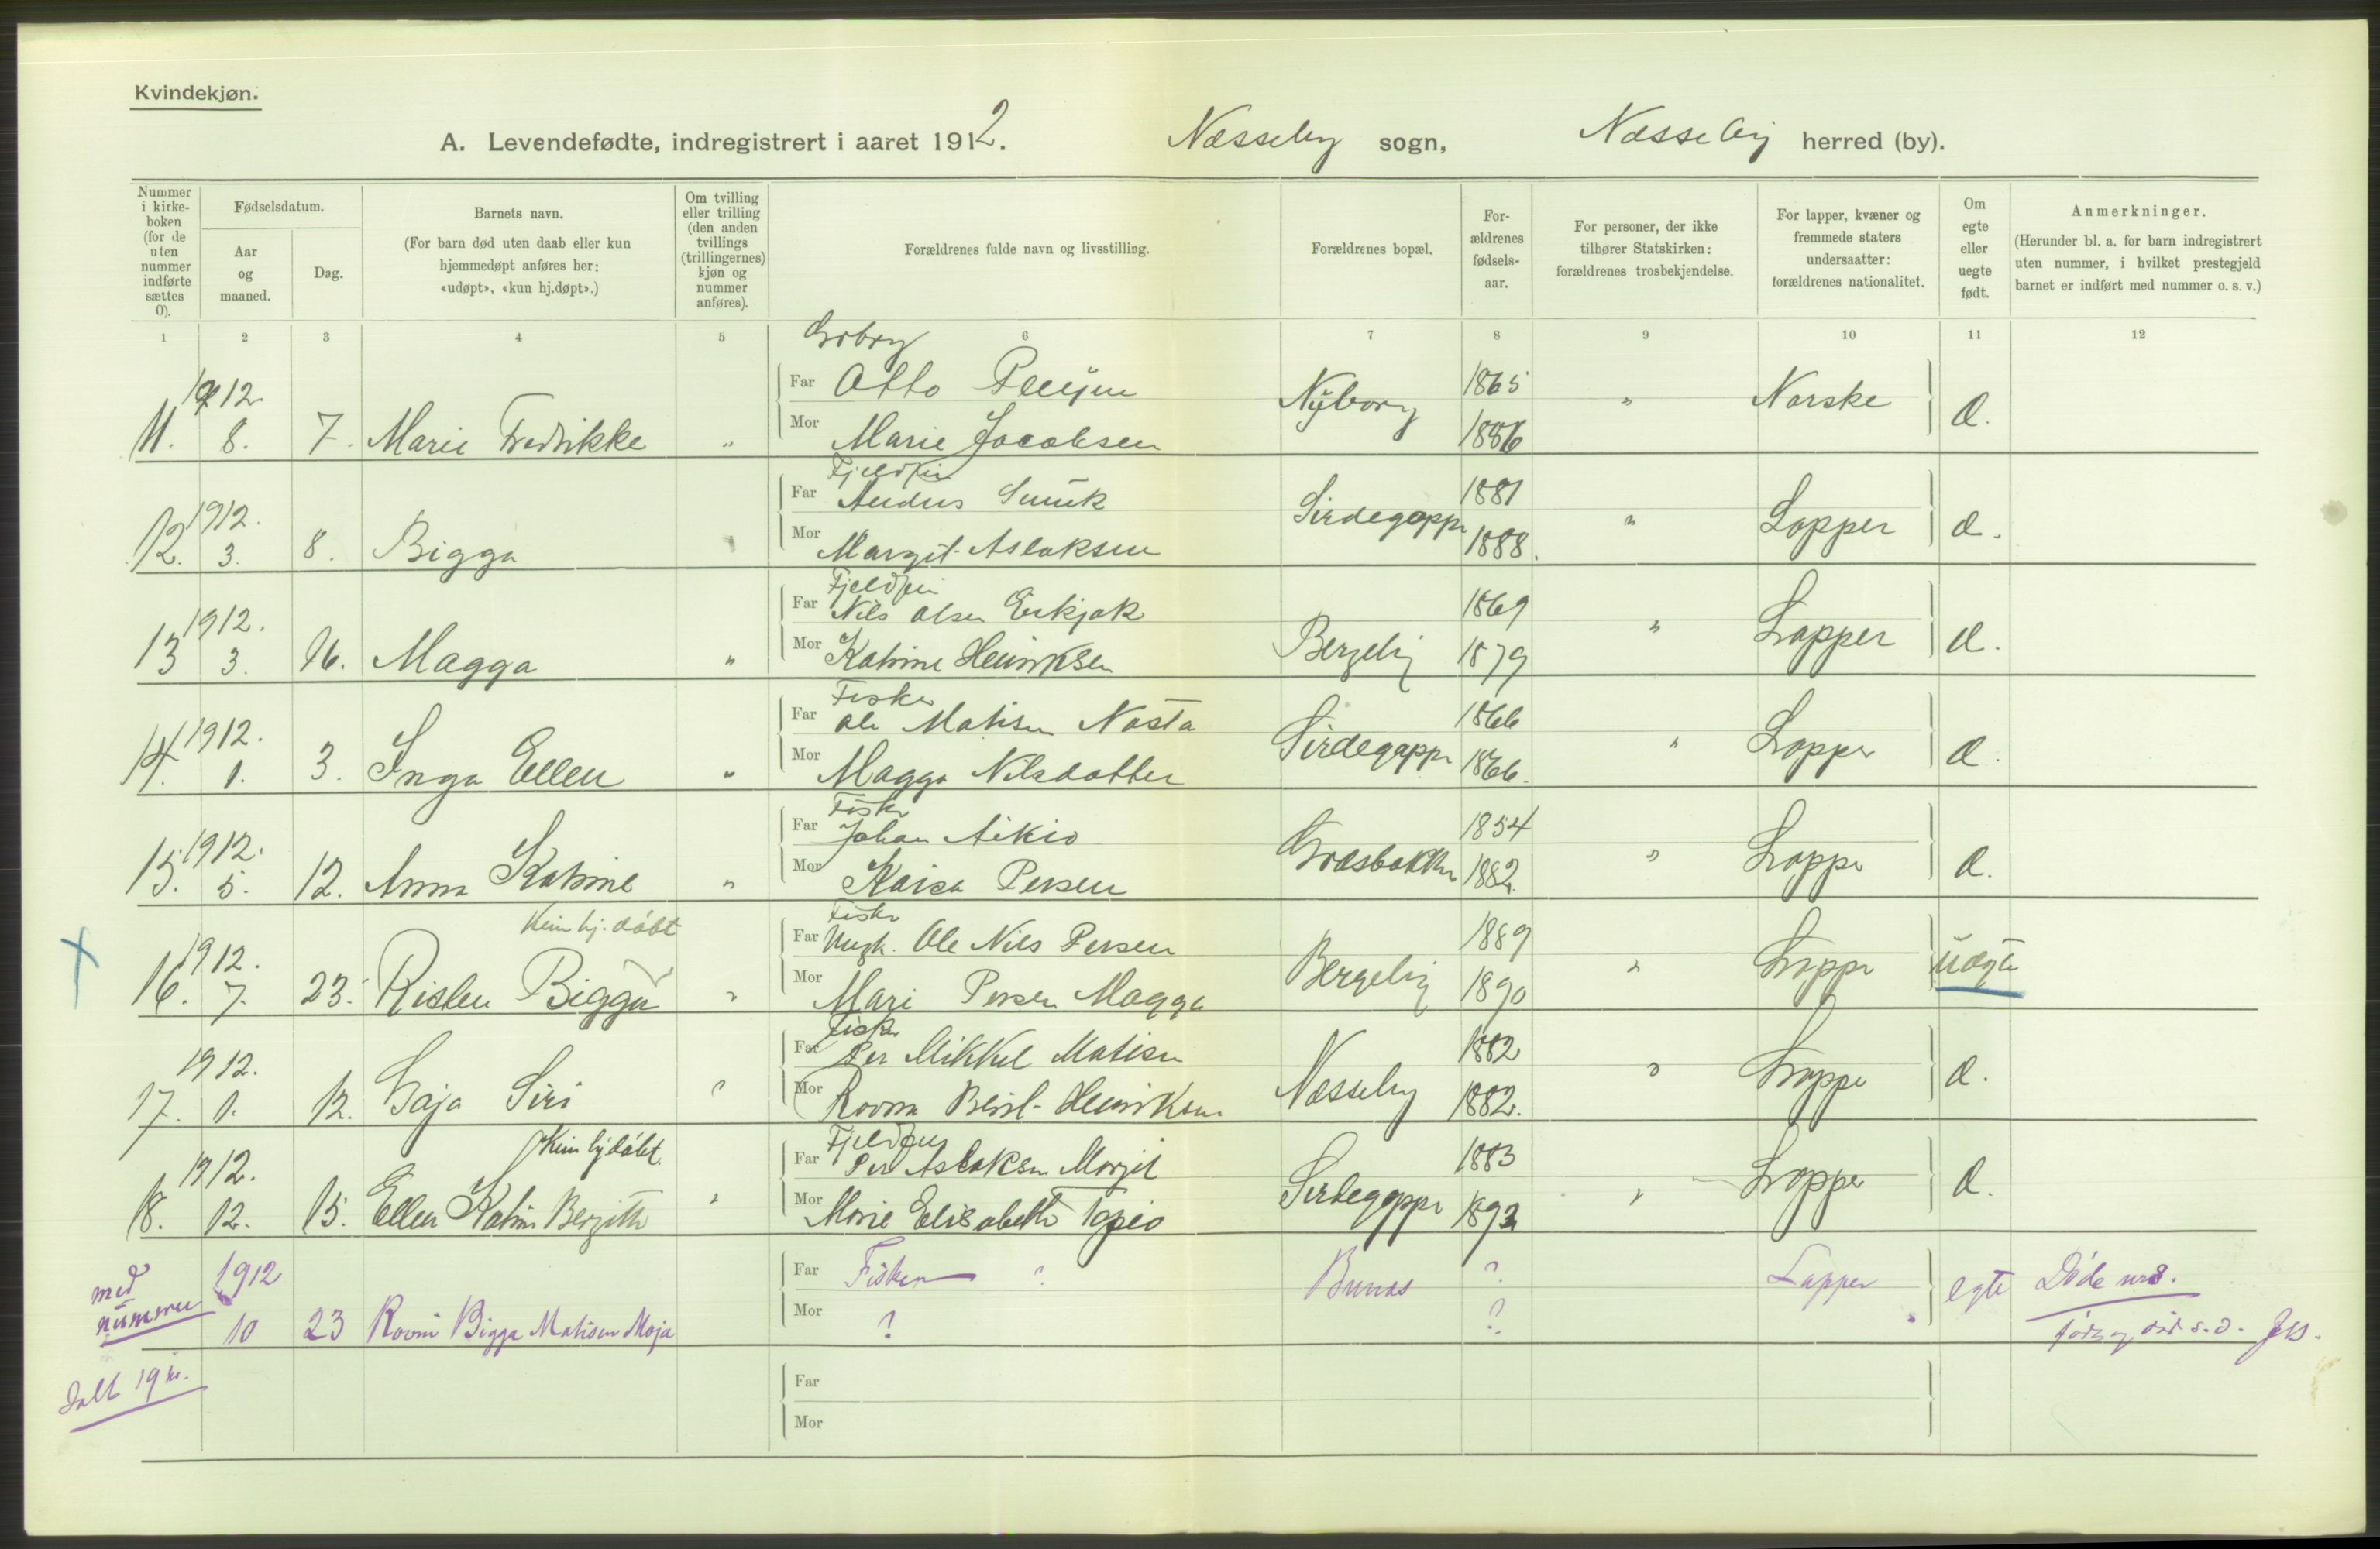 Kvindekjøn.
A. Levendefødte, indregistrert i aaret 1912. Næsseby sogn, Næsseby herred (by).
Nummer i kirke-boken (for de uten nummer indførte sættes 0).
Fødselsdatum.
Aar og maaned.
Dag.
Barnets navn.
(For barn død uten daab eller kun hjemmedøpt anføres her: «udøpt», «kun hj.døpt».)
Om tvilling eller trilling (den anden tvillings (trillingernes) kjøn og nummer anføres).
Forældrenes fulde navn og livsstilling.
Forældrenes bopæl.
For-ældrenes fødsels-aar.
For personer, der ikke tilhører Statskirken: forældrenes trosbekjendelse.
For lapper, kvæner og fremmede staters undersaatter: forældrenes nationalitet.
Om egte eller uegte født.
Anmerkninger.
(Herunder bl. a. for barn indregistrert uten nummer, i hvilket prestegjeld barnet er indført med nummer o. s. v.)
1 2 3 4 5 6 7 8 9 10 11 12
11. 1912. 8. 7. Marie Fredrikke „
Far Otto
Mor Marie Jacobsen
Nyborg 1865 1886 „ Norske Æ.
12. 1912. 3. 8. Bigga
Fjeldfin
Far Andus Smuk
Mor Margit Aslaksen
Sirdegoppe 1881 1888. „ Lapper Æ.
13 1912. 3. 16. Magga „
Fjeldfin
Far Nils Olsen Erkjok
Mor Katrine Henriksen
Bergeby 1869 1879 „ Lapper Æ.
14. 1912. 1. 3. Inga Ellen „
Fisker
Far Ole Matisen Nasta
Mor Magga Nilsdatter
Sirdegoppe 1866 1866. „ Lapper Æ.
15. 1912. 5. 12. Anna Katrine „
Fisker
Far Johan Aikio
Mor Kaisa Persen
Græsbakken 1854 1882. „ Lapper Æ.
Kun hj. døbt
16. 1912. 7. 23. Risten Bigga „
Fisker
Far Ungk. Ole Nils Persen
Mor Mari Persen Magga
Bergeby 1889 1890 „ Lapper Uægte
17. 1912. 1. 12. Gaja Siri „
Fisker
Far Per Mikkel Matisen
Mor Rovna Berit Henriksen
Næsseby 1882 1882. „ Lapper Æ.
Kun hj døbt.
18. 1912. 12. 15. Ellen Katrin Bergitte „
Fjeldfin
Far Per Aslaksen Margit
Mor Marie Elisabeth Topio
Sirdegoppe 1883 1892 „ Lapper Æ.
med nummer 1912 10 23 Rovni Bigga Matisen Moja
Far Fisker ?
Mor ?
Bunas ? ? Lapper egte Døde nr 8.
født og død s.d.
Ialt 19 kv.
Far
Mor